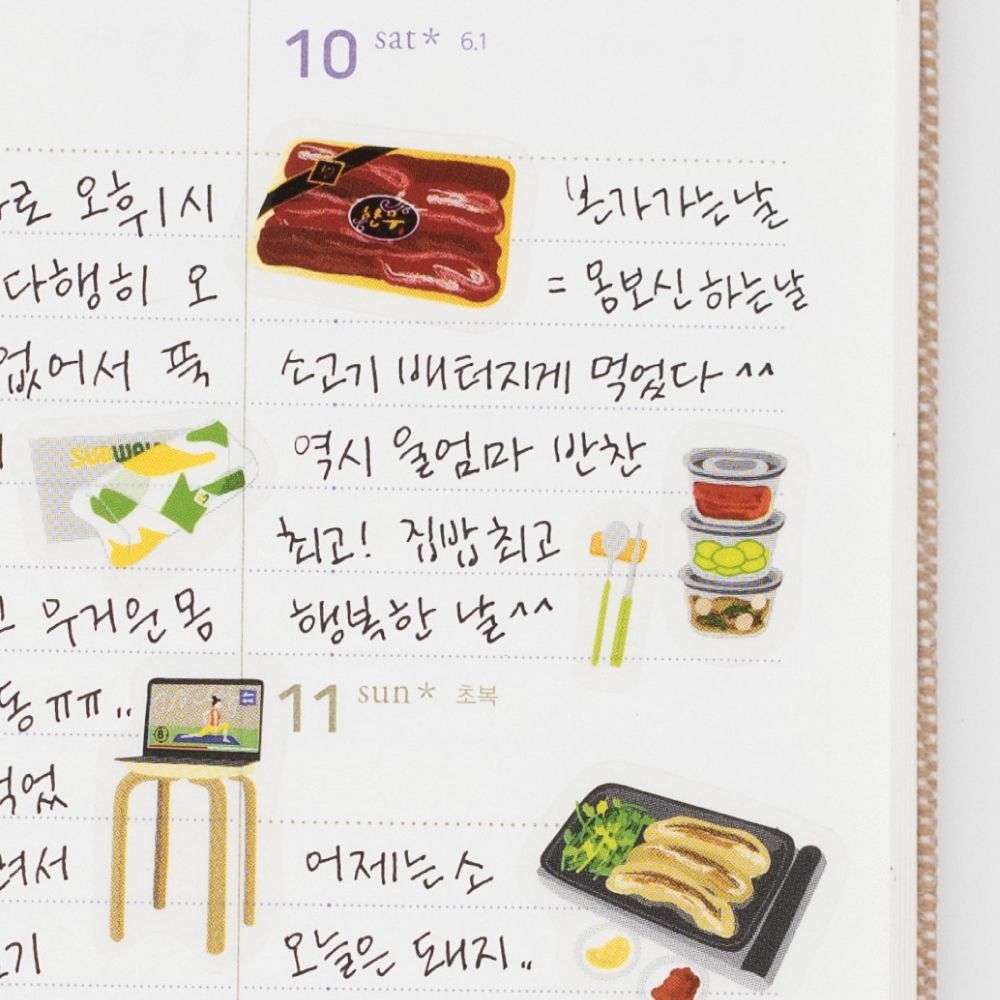 로 오후 1시
다행히 오
없어서 푹
SUBWAY
고 무거운 몸
동 ㅠㅠ..
먹었
려서
고기
10 sat* 6.1
한우
본가가는날
= 몸보신하는날
소고기 배터지게 먹었다 ^^
역시 울엄마 반찬
최고! 집밥최고
행복한 날^^
11 sun* 초복
어제는 소
오늘은 돼지..